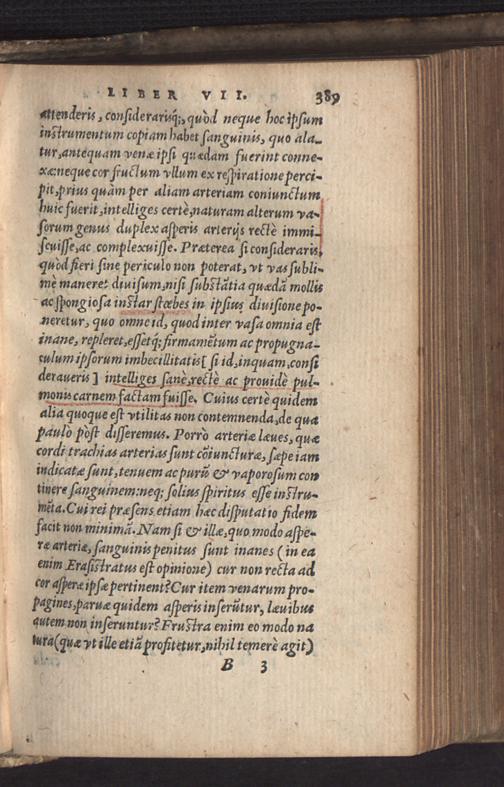 LIBER VII. 389
attenderis, considerarisq́;, quòd neque hoc ipsum
instrumentum copiam habet sanguinis, quo ala-
tur, antequam venæ ipsi quædam fuerint conne-
xæ: neque cor fructum vllum ex respiratione perci-
pit, prius quàm per aliam arteriam coniunctum
huic fuerit, intelliges certè, naturam alterum va-
sorum genus duplex asperis arterijs rectè immi-
scuisse, ac complexuisse. Præterea si consideraris,
quòd fieri sine periculo non poterat, vt vas subli-
mè maneret diuisum, nisi substãtia quædã mollis
ac spongiosa instar stœbes in ipsius diuisione po-
neretur, quo omne id, quod inter vasa omnia est
inane, repleret, essetq́; firmamẽtum ac propugna-
culum ipsorum imbecillitatis [ si id, inquam, consi
deraueris ] intelliges sanè, rectè ac prouidè pul-
monis carnem factam fuisse. Cuius certè quidem
alia quoque est vtilitas non contemnenda, de qua
paulò pòst disseremus. Porrò arteriæ læues, quæ
cordi trachias arterias sunt cõiuncturæ, sæpe iam
indicatæ sunt, tenuem ac purũ & vaporosum con
tinere sanguinem: neq; solius spiritus esse instru-
mẽta. Cui rei præsens etiam hæc disputatio fidem
facit non minimã. Nam si & illæ, quo modo aspe-
ræ arteriæ, sanguinis penitus sunt inanes (in ea
enim Erasistratus est opinione) cur non recta ad
cor asperæ ipsæ pertinent? Cur item venarum pro-
pagines, paruæ quidem asperis inserũtur, læuibus
autem non inseruntur? Frustra enim eo modo na
tura (quæ vt ille etiã profitetur, nihil temerè agit)
B 3